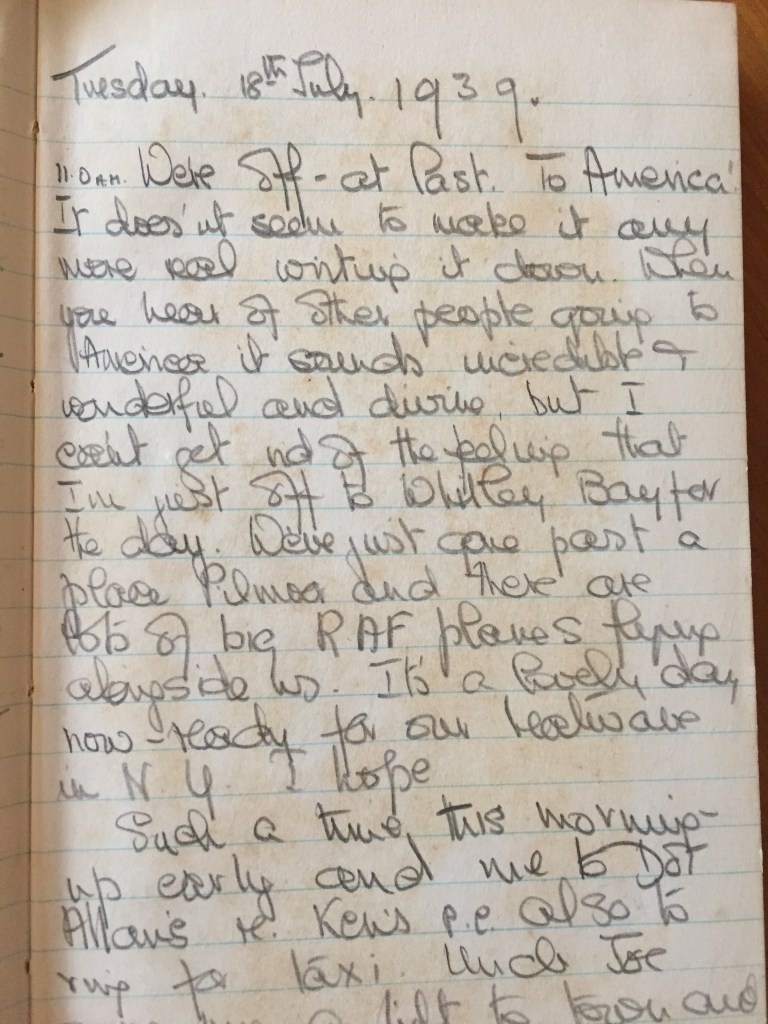 Tuesday. 18th July. 1939.
11.0 AM. We're off - at last. To America!
It does'nt seem to make it any
more real writing it down. When
you hear of other people going to
America it sounds incredible &
wonderful and divine, but I
can't get rid of the feeling that
I'm just off to Whitley Bay for
the day. We've just gone past a
place Pilmoor and there are
lots of big RAF planes flying
alongside us. It's a lovely day
now - ready for our heatwave
in N.Y. I hope
Such a time this morning -
up early and me to Dot
Allan's re. Ken's p.c. also to
ring for taxi. Uncle Joe
a lift to town and